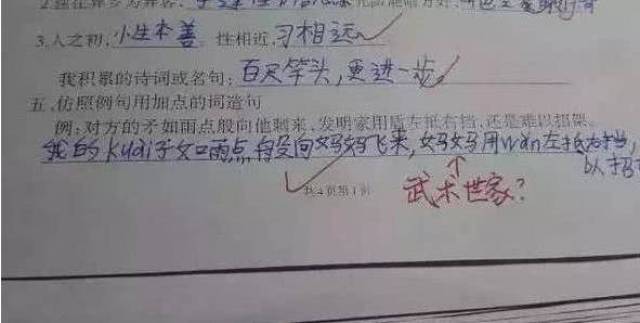 3.人之初,小生本善。性相近,习相远
我积累的诗词或名句:百尺竿头,更进一步
五、仿照例句用加点的词造句
例:对方的矛如雨点般向他刺来,发明家用盾左抵右挡,还是难以招架。
我的kuai子如雨点般向妈妈飞来,妈妈用wǎn左抵右挡,
共4页第1页
武术世家?